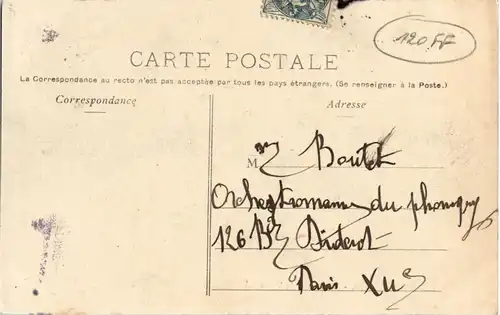 120 FF
CARTE POSTALE
La Correspondance au recto n'est pas acceptée par tous les pays étrangers. (Se renseigner à la Poste.)
Correspondance
Adresse
M
du
126 Bd Diderot
Paris XII e